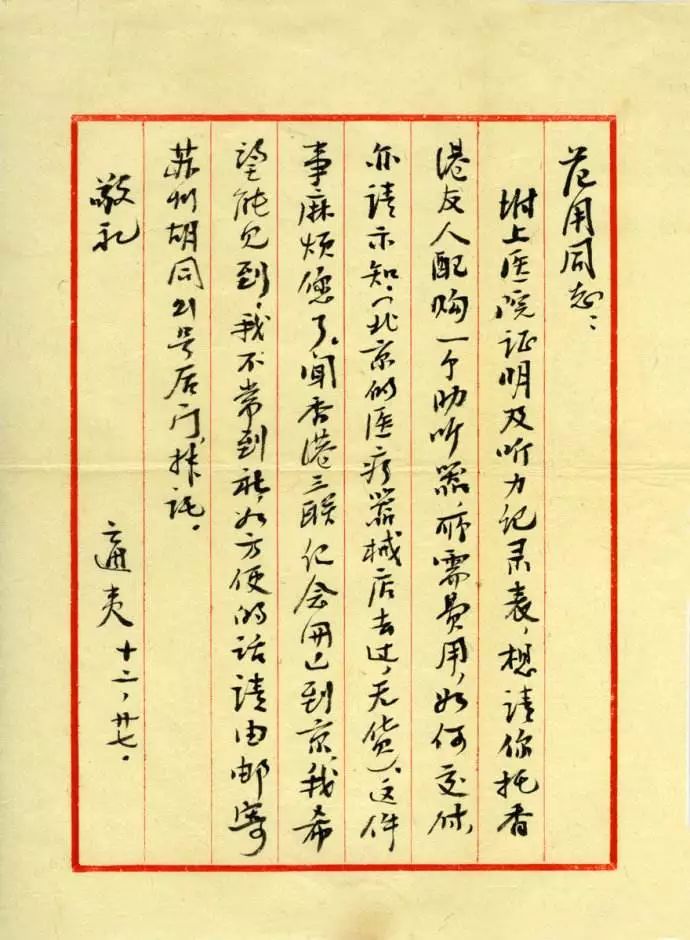 范用同志：
附上医院证明及听力记录表，想请你托香
港友人配购一个助听器，所需费用，如何交付，
亦请示知。（北京的医疗器械店去过，无货）。这件
事麻烦您了。闻香港三联纪念册已到京，我希
望能见到，我不常到社，如方便的话请由邮寄
苏州胡同21号后门，拜托。
敬礼
适夷 十二，廿七。